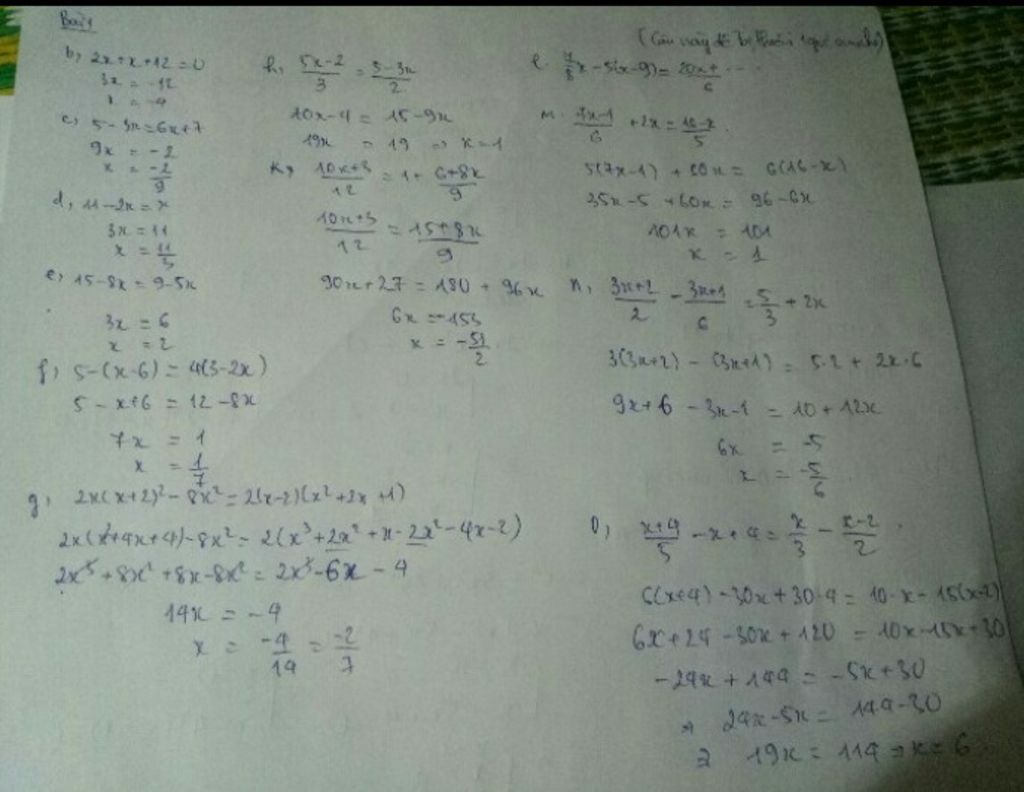 Bài 1
b, 2x+x+12=0
3x = -12
x = -4
c, 5-3x=6x+7
9x = -2
x = -2/9
d, 11-2x=x
3x=11
x = 11/3
e, 15-8x=9-5x
3x = 6
x = 2
f, 5-(x-6)=4(3-2x)
5-x+6 = 12-8x
7x = 1
x = 1/7
g, 2x(x+2)²-8x²=2(x-2)(x²+2x+1)
2x(x²+4x+4)-8x²=2(x³+2x²+x-2x²-4x-2)
2x³+8x²+8x-8x²=2x³-6x-4
14x = -4
x = -4/14 = -2/7
h, (5x-2)/3 = (5-3x)/2
10x-4 = 15-9x
19x = 19 => x=1
k, (10x+3)/12 = 1+ (6+8x)/9
(10x+3)/12 = (15+8x)/9
90x+27 = 180+96x
6x = -153
x = -51/2
(Câu này đề bị
l. 7/8x-5(x-9)= (20x+ ...)/6
m. (7x-1)/6 +2x = (16-x)/5
5(7x-1)+60x = 6(16-x)
35x-5+60x = 96-6x
101x = 101
x = 1
n, (3x+2)/2 - (3x+1)/6 = 5/3 + 2x
3(3x+2)-(3x+1) = 5.2 + 2x.6
9x+6-3x-1 = 10+12x
6x = -5
x = -5/6
O, (x+4)/5 -x+4 = x/3 - (x-2)/2
6(x+4)-30x+30.4 = 10.x-15(x-2)
6x+24-30x+120 = 10x-15x+30
-24x+144 = -5x+30
=> 24x-5x = 144-30
=> 19x = 114 => x = 6